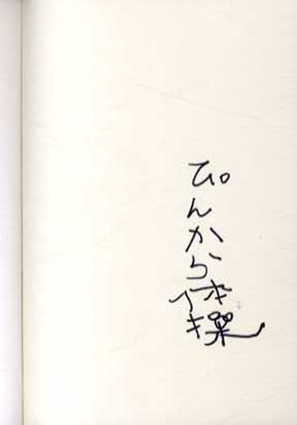 ぴんから体操